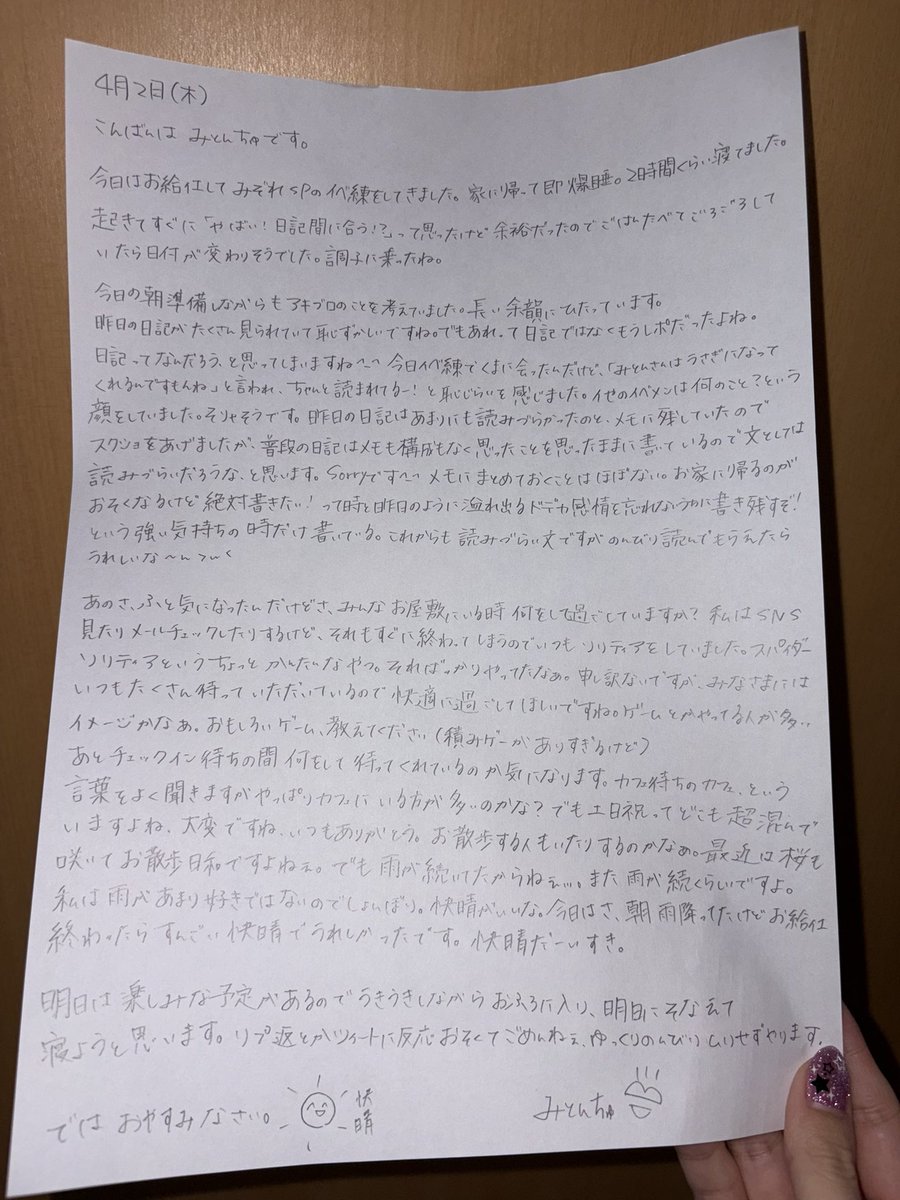 4月2日(木)
こんばんは みとんちゅです。
今日はお給仕して みぞれSPのイベ練をしてきました。家に帰って即爆睡。2時間くらい寝てました。
起きてすぐに「やばい!日記間に合う!?」って思ったけど余裕だったのでごはんたべてごろごろして
いたら日付が変わりそうでした。調子に乗ったね。
今日の朝準備しながらもアキブロのことを考えていました。長い余韻にひたっています。
昨日の日記がたくさん見られていて恥ずかしいですね。でもあれって日記ではなくもうレポだったよね。
日記ってなんだろう、と思ってしまいますね〜〜 今日イベ練でくまに会ったんだけど、「みとんさんはうさぎになって
くれるんですもんね」と言われ、ちゃんと読まれてるー!と恥じらいを感じました。他のイベメンは何のこと?という
顔をしていました。そりゃそうです。昨日の日記はあまりにも読みづらかったのと、メモに残していたので
スクショをあげましたが、普段の日記はメモも構成もなく思ったことを思ったままに書いているので文としては
読みづらいだろうな、と思います。Sorryです〜〜 メモにまとめておくことはほぼない。お家に帰るのが
おそくなるけど絶対書きたい!って時と昨日のように溢れ出るドデカ感情を忘れないうちに書き残すぞ!
という強い気持ちの時だけ書いている。これからも読みづらい文ですがのんびり読んでもらえたら
うれしいな〜ん
あのさ、ふと気になったんだけどさ、みんなお屋敷にいる時何をして過ごしていますか?私はSNS
見たりメールチェックしたりするけど、それもすぐに終わってしまうのでいつもソリティアをしていました。スパイダー
ソリティアというちょっとかんたんなやつ。そればっかりやってたなぁ。申し訳ないですが、みなさまには
いつもたくさん待っていただいているので快適に過ごしてほしいですね。ゲームとかやってる人が多い
イメージかなぁ。おもしろいゲーム、教えてください(積みゲーがありすぎるけど)
あとチェックイン待ちの間何をして待ってくれているのか気になります。カフェ待ちのカフェ、という
言葉をよく聞きますがやっぱりカフェにいる方が多いのかな?でも土日祝ってどこも超混んで
いますよね、大変ですね、いつもありがとう。お散歩する人もいたりするのかなぁ。最近は桜も
咲いてお散歩日和ですよねぇ。でも雨が続いてたからねぇ…。また雨が続くらいですよ。
私は雨があまり好きではないのでしょんぼり。快晴がいいな。今日はさ、朝雨降ってたけどお給仕
終わったらすんごい快晴でうれしかったです。快晴だーいすき。
明日は楽しみな予定があるのでうきうきしながらおふろに入り、明日にそなえて
寝ようと思います。リプ返とかツイートに反応おそくてごめんねぇ、ゆっくりのんびりムリせずやります。
ではおやすみなさい。 快晴 みとんちゅ